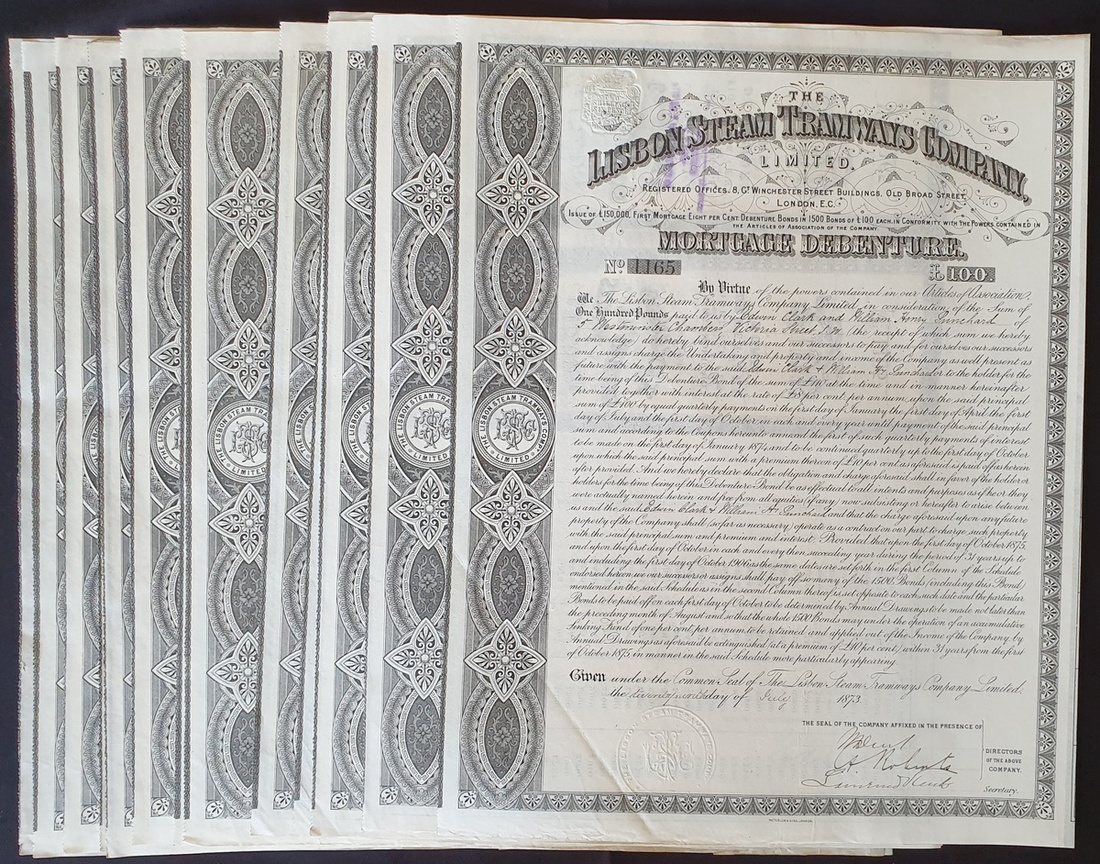 THE
LISBON STEAM TRAMWAYS COMPANY,
LIMITED.
REGISTERED OFFICES, 8, GT. WINCHESTER STREET BUILDINGS, OLD BROAD STREET,
LONDON, E.C.
ISSUE OF £150,000, FIRST MORTGAGE EIGHT PER CENT DEBENTURE BONDS IN 1500 BONDS OF £100 EACH, IN CONFORMITY WITH THE POWERS CONTAINED IN
THE ARTICLES OF ASSOCIATION OF THE COMPANY.
MORTGAGE DEBENTURE.
No 1165 £100
By Virtue of the powers contained in our Articles of Association,
We The Lisbon Steam Tramways Company Limited, in consideration of the Sum of
One Hundred Pounds paid to us by Edwin Clark and William Henry Punchard of
5 Westminster Chambers, Victoria Street S.W. (the receipt of which sum we hereby
acknowledge) do hereby bind ourselves and our successors to pay and for ourselves our successors
and assigns charge the Undertaking and property and income of the Company as well present as
future with the payment to the said Edwin Clark & William H. Punchard or to the holder for the
time being of this Debenture Bond of the sum of £110 at the time and in manner hereinafter
provided, together with interest at the rate of £8 per cent. per annum, upon the said principal
sum of £100 by equal quarterly payments on the first day of January the first day of April the first
day of July and the first day of October in each and every year until payment of the said principal
sum and according to the Coupons hereunto annexed the first of such quarterly payments of interest
to be made on the first day of January 1874 and to be continued quarterly up to the first day of October
upon which the said principal sum with a premium thereon of £10 per cent as aforesaid is paid off as herein
after provided. And we hereby declare that the obligation and charge aforesaid shall in favor of the holder or
holders for the time being of this Debenture Bond be as effectual to all intents and purposes as if he or they
were actually named herein and free from all equities (if any) now subsisting or hereafter to arise between
us and the said Edwin Clark & William H. Punchard and that the charge aforesaid upon any future
property of the Company shall (so far as necessary) operate as a contract on our part to charge such property
with the said principal sum and premium and interest: Provided that upon the first day of October 1875,
and upon the first day of October in each and every then succeeding year during the period of 31 years up to
and including the first day of October 1906 as the same dates are set forth in the first Column of the Schedule
endorsed hereon we our successors or assigns shall pay off so many of the 1500 Bonds (including this Bond)
mentioned in the said Schedule as in the second Column thereof is set opposite to each such date and the particular
Bonds to be paid off on each first day of October to be determined by Annual Drawings to be made not later than
the preceding month of August and so that the whole 1500 Bonds may under the operation of an accumulative
Sinking Fund of one per cent per annum to be retained and applied out of the Income of the Company by
Annual Drawings as aforesaid be extinguished (at a premium of £10 per cent) within 31 years from the first
of October 1875, in manner in the said Schedule more particularly appearing.
Given under the Common Seal of The Lisbon Steam Tramways Company Limited,
the day of July 1873.
THE SEAL OF THE COMPANY AFFIXED IN THE PRESENCE OF
DIRECTORS
OF THE ABOVE
COMPANY.
Secretary.
THE LISBON STEAM TRAMWAYS COMPY
LIMITED